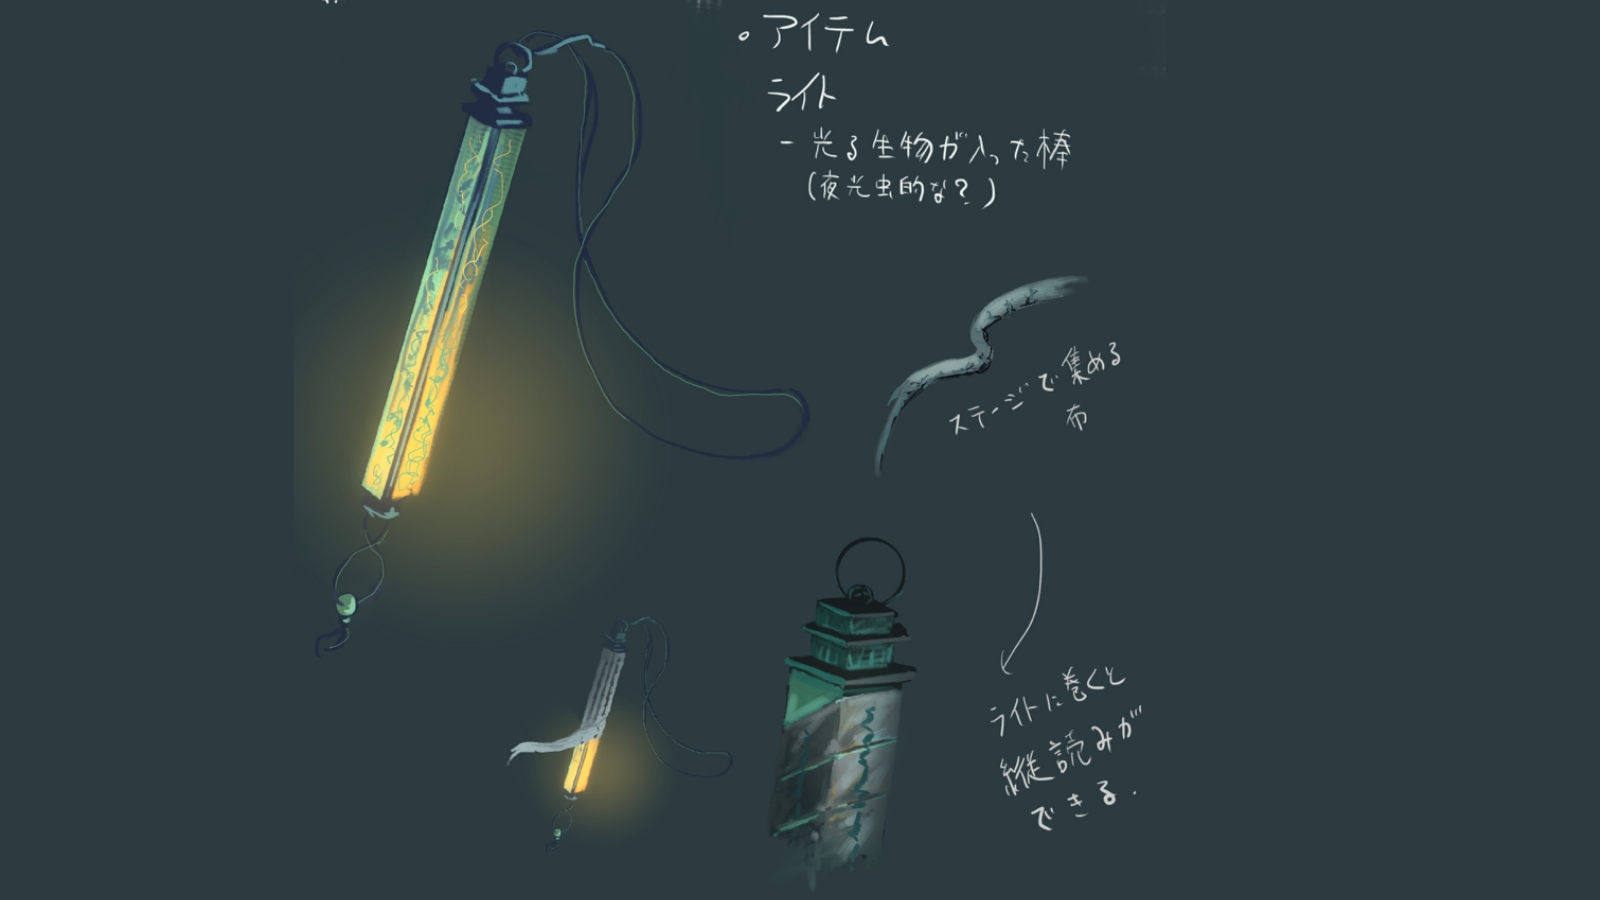 ・アイテム
ライト
- 光る生物が入った棒
(夜光虫的な?)
ステージで集める
布
ライトに巻くと
縦読みが
できる.